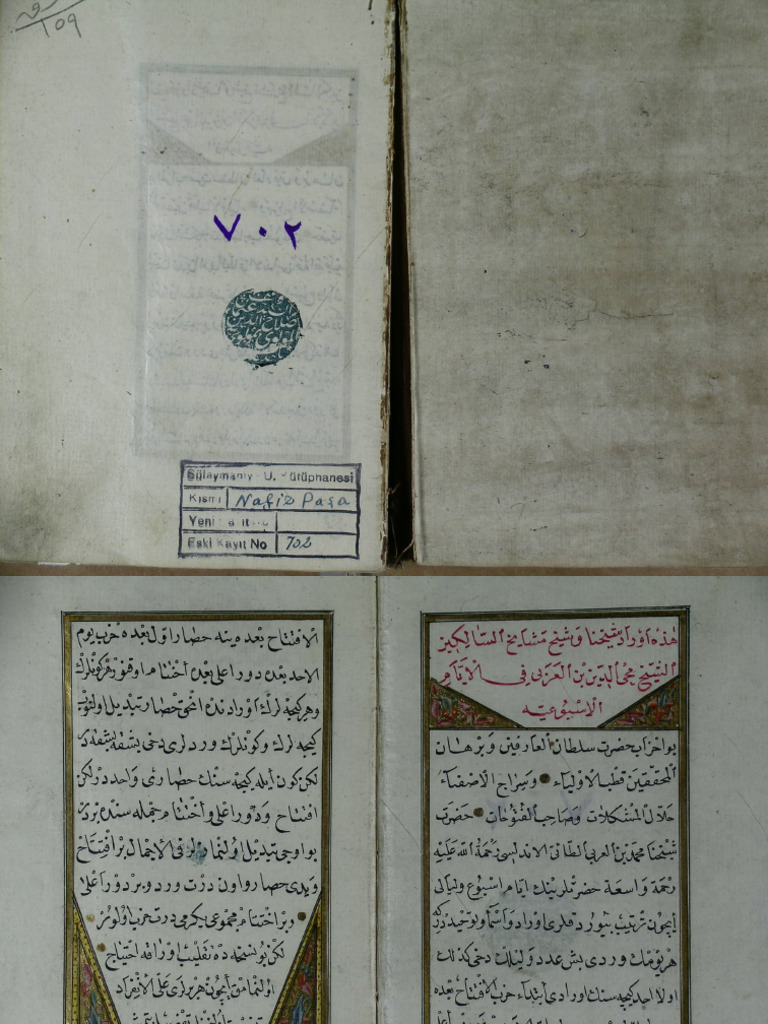 ١٥٩
٧٠٢
Süleymaniye U. Kütüphanesi
Kısmı Nafiz Paşa
Yeni
Eski Kayıt No 702
هذه اوراد شيخنا وشيخ مشايخ السالكين
الشيخ محي الدين بن العربي في الايام
الاسبوعيه
بو احزاب حضرت سلطان العارفين وبرهان
المحققين قطب الاولياء وسراج الاصفياء
حلال المشكلات وصاحب الفتوحات حضرت
شيخنا محمد بن العربي الطائي الاندلسي رحمة الله عليه
رحمة واسعة حضرتلرينك ايام اسبوع وليالي
ايچون ترتيب بيورد قلرى اوراد واسما وتوحيد دركه
هر يومك وردى بش عدد وليلك دخى كذلك
اولا احد كيجه سنك اورادى ابتداء حزب الافتتاح بعده
الافتتاح بعده ينه حصار اول بعده حزب يوم
الاحد بعده دور اعلى بعده اختتام اوقنور هر كونلرك
وهر كيجه لرك اورادنده انجق حصار تبديل اولنوب
كيجه لرك وكونلرك وردلرى دخى بشقه بشقه در
لكن كون ايله كيجه سنك حصارى واحد در لكن
افتتاح ودور اعلى واختتام جمله سنده بردر
بو اوجى تبديل اولنماز في الاجمال بر افتتاح
ويدى حصار واون درت ورد وبر دور اعلى
وبر اختتام مجموعى يكرمى درت حزب اولور
لكن بو نسخه ده تقليب اوراقه احتياج
اولنمامق ايچون هر برى على الانفراد